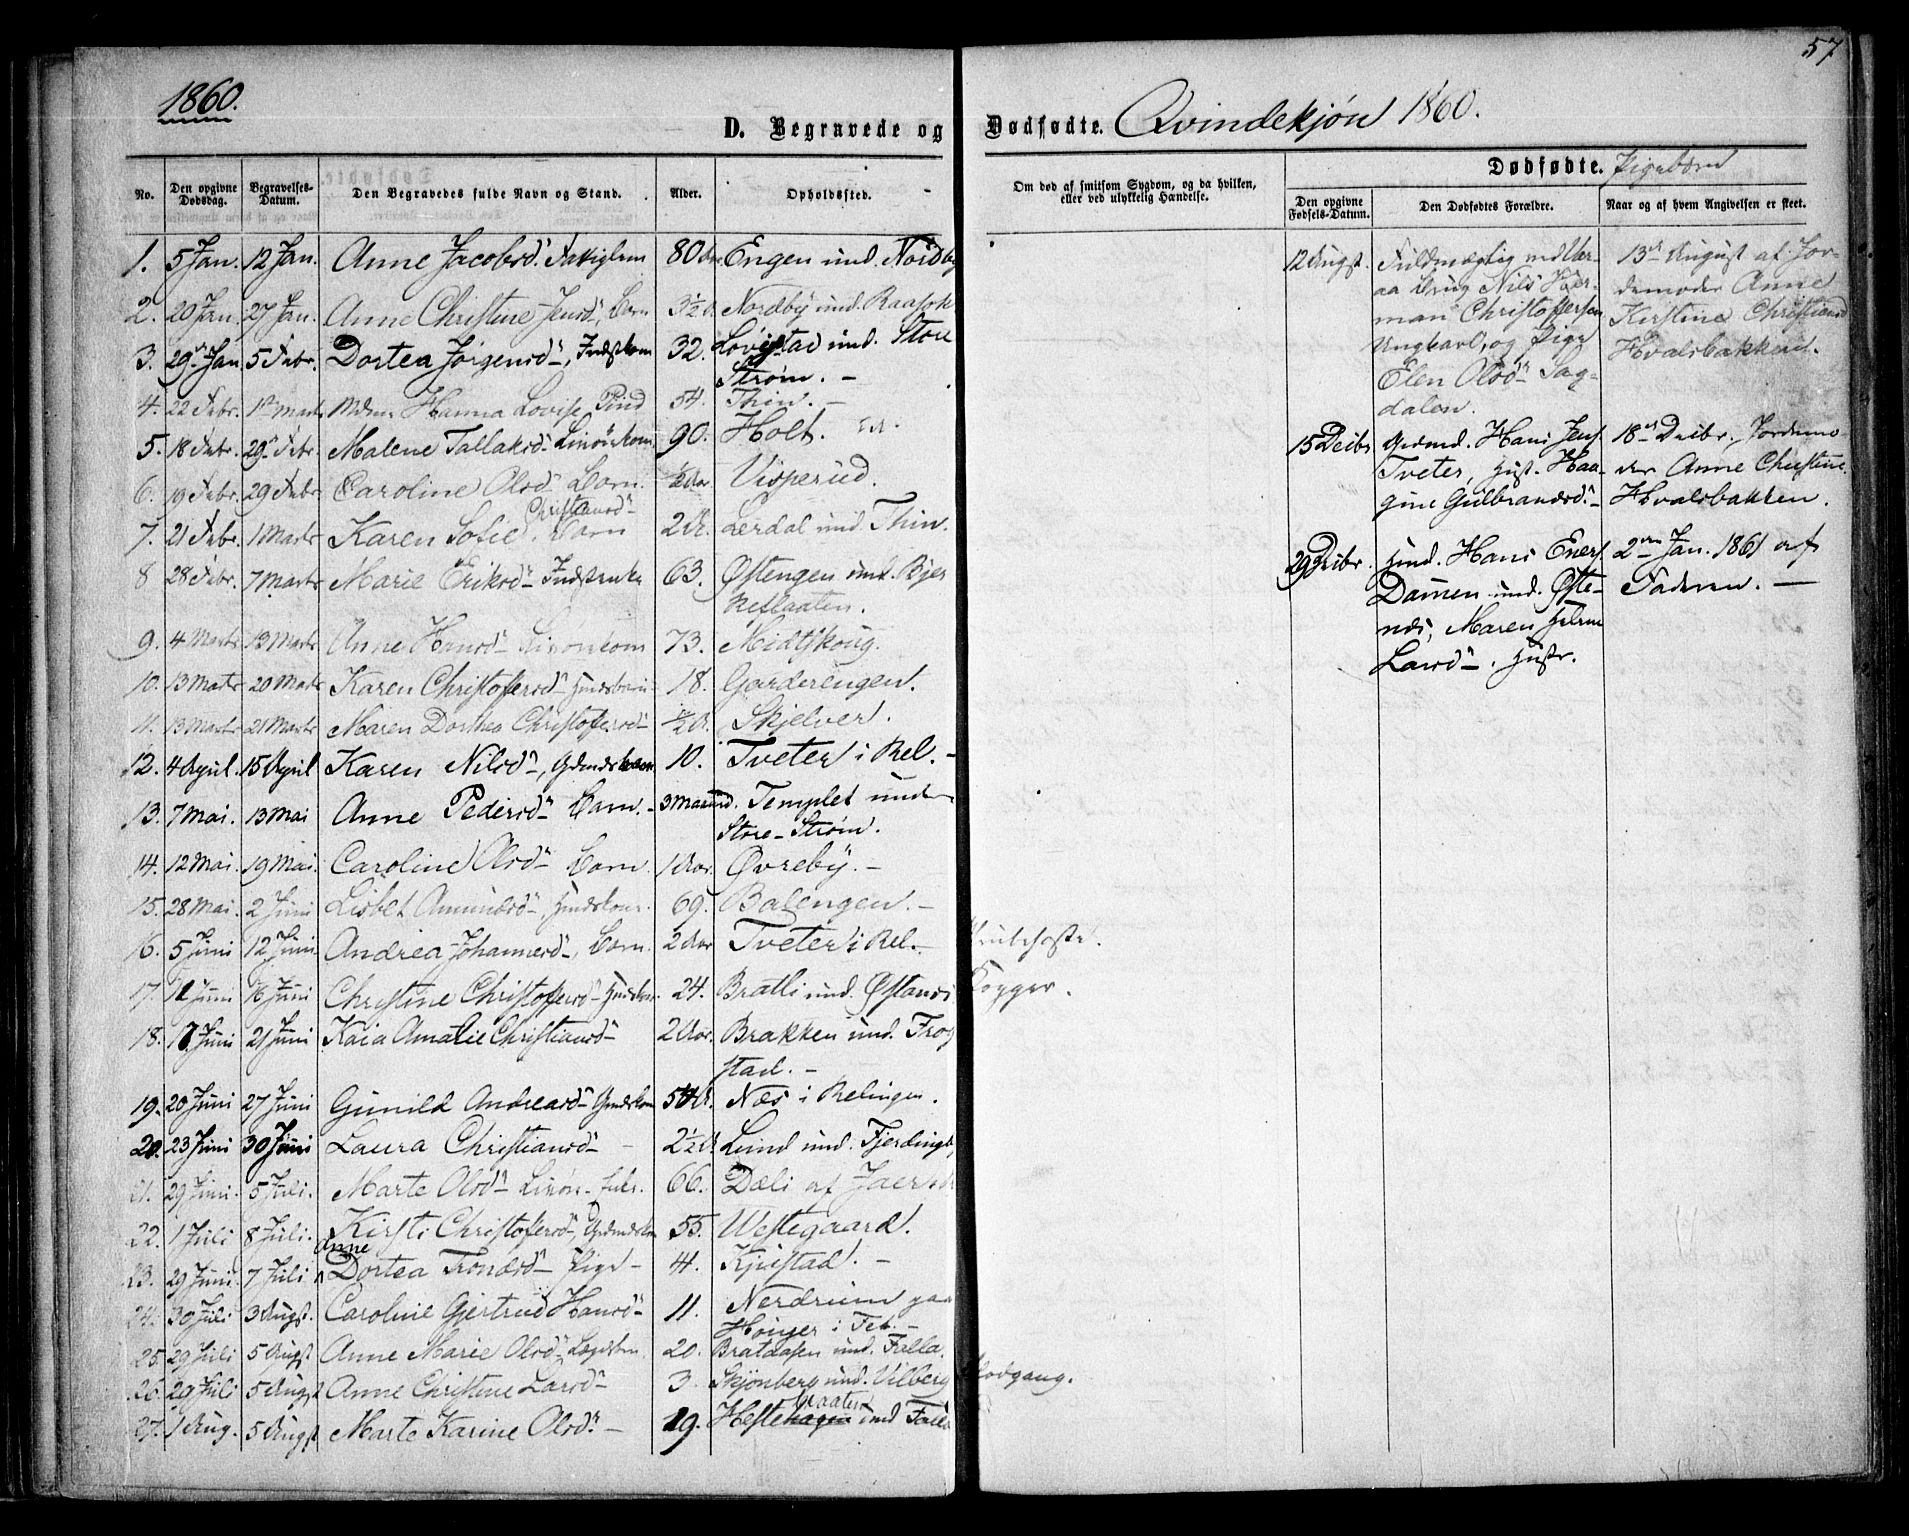 57
1860.
D. Begravede og Dødfødte. Qvindekjøn 1860.
Dødfødte. Pigebørn
No. Den opgivne Dødsdag. Begravelses-Datum. Den Begravedes fulde Navn og Stand. Alder. Opholdssted.
Om død af smitsom Sygdom, og da hvilken, eller ved ulykkelig Hændelse.
Den opgivne Fødsels-Datum. Den Dødfødtes Forældre. Naar og af hvem Angivelsen er skeet.
1. 5 Jan. 12 Jan. Anne Jacobsd. Fattiglem 80 Engen und. Nordby
2. 20 Jan. 27 Jan. Anne Christine Jensd, Barn 3½ Nordby und. Raasok
3. 29 Jan 5 Febr. Dortea Jørgensd, Indstkom 32. und. Store
Strøm. -
4. 22 Febr. 1 Marts Mdme Hanna Lovise 54. Thin. -
5. 18 Febr. 29 Febr. Malene Tallaksd. 90. Holt.
6. 19 Febr. 29 Febr. Caroline Olsd Barn. ½ Aar Visperud.
Christiansd
7. 21 Febr. 1 Marts Karen Sofie. Barn 2 Lerdal und. Thin.
8 28 Febr. 7 Marts Marie Eriksd 63. Østengen und. Bjer
keslaaten.
9. 4 Marts 13 Marts Anne Hansd 73. Midtskoug.
10. 13 Marts 20 Marts Karen Christofersd 18. Garderengen.
11. 13 Marts 21 Marts Maren Dortea Christofersd ½ Skjelver.
12. 4 April. 15 April Karen Nilsd, 10. Tveter i Rel. -
13. 7 Mai. 13 Mai Anne Pedersd Barn. 3 Maaned. Templet under
Store-Strøm.
14. 12 Mai. 19 Mai. Caroline Olsd Barn 1 Aar. Øvreby. -
15. 28 Mai. 2 Juni Lisbet Amundsd, 69. Balengen. -
16. 5 Juni 12 Juni Andrea Johannesd, Barn. 2 Aar Tveter i Rel. - Strubehoste.
17. 11 Juni 16 Juni Christine Christofersd 24. Bratli und. Østands Kopper.
18. 17 Juni 21 Juni Kaia Amalie Christiansd 2 Aar. Brakken und. Frog
stad. -
19. 20 Juni 27 Juni Gunild Andreasd 54 Næs i Relingen.
20. 23 Juni 30 Juni Laura Christiansd - 2½ Lund und. Fjerdingb
21. 29 Juni. 5 Juli. Marte Olsd 66. Dæli af
22. 1 Juli 8 Juli. Kirsti Christofersd, 55. Westegaard.
Anne
23. 29 Juni. 7 Juli Dortea Trondsd Pige - 4. Kjustad. -
24. 30 Juli 3 Augst. Caroline Gjertrud Hansd 11. Nerdrum paa
i Fet. -
25. 29 Juli 5 Augst Anne Marie Olsd 20. Brataasen und. Falla.
26. 29 Juli 5 Augst Anne Christine Larsd 3. Skjønberg und. Vilberg Blodgang.
braaten
27. 1 Aug. 5 Augst Marte Karine Olsd - 19. Hestehagen und
12 Augst. Fuldmægtig ved
Brug Nils Her-
man Christoffersen
Ungkarl, og Pige
Elen Olsd Sag-
dalen.
13 August af Jor-
demoder Anne
Kirstine Christiansd
Hvalsbakken.
15 Decbr Grdmd. Hans Jens
Tveter, Hust. Haa-
gine Gulbrandsd. -
18 Decbr. Jordemo-
der Anne Christine
Hvalsbakken.
29 Decbr. Husmd. Hans Eners
Damen und. Øste-
næs, Maren Helene
Larsd. Hustr.
2 Jan. 1861 af
Faderen. -